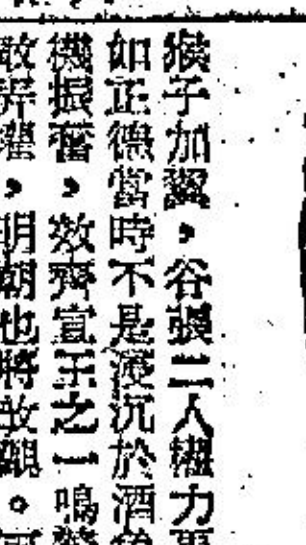 猴子加翼，谷張二人權力更
如正德當時不是浸沉於酒色
機振奮，效齊宣王之一鳴驚
敢弄權，明朝也將改觀。可